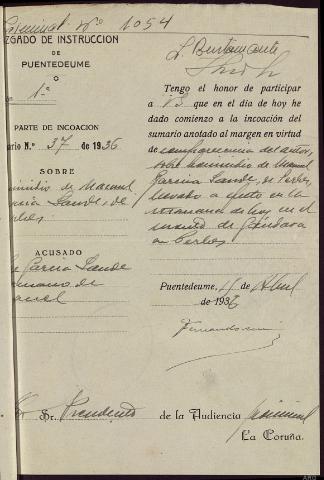 Criminal Nº 1054
ZGADO DE INSTRUCCION
DE
PUENTEDEUME
1.º
PARTE DE INCOACION
ario N.º 37 de 1936
SOBRE
micidio de Manuel
rcia Sande, de
ACUSADO
García Sande
mano de
anuel
Tengo el honor de participar
a V.S. que en el día de hoy he
dado comienzo a la incoación del
sumario anotado al margen en virtud
de comparecencia del autor,
sobre homicidio de Manuel
García Sande, de
llevado a efecto en la
mañana de hoy en el
monte de
en
Puentedeume, 4 de Abril
de 1936
Sr. Presidente de la Audiencia provincial
La Coruña.